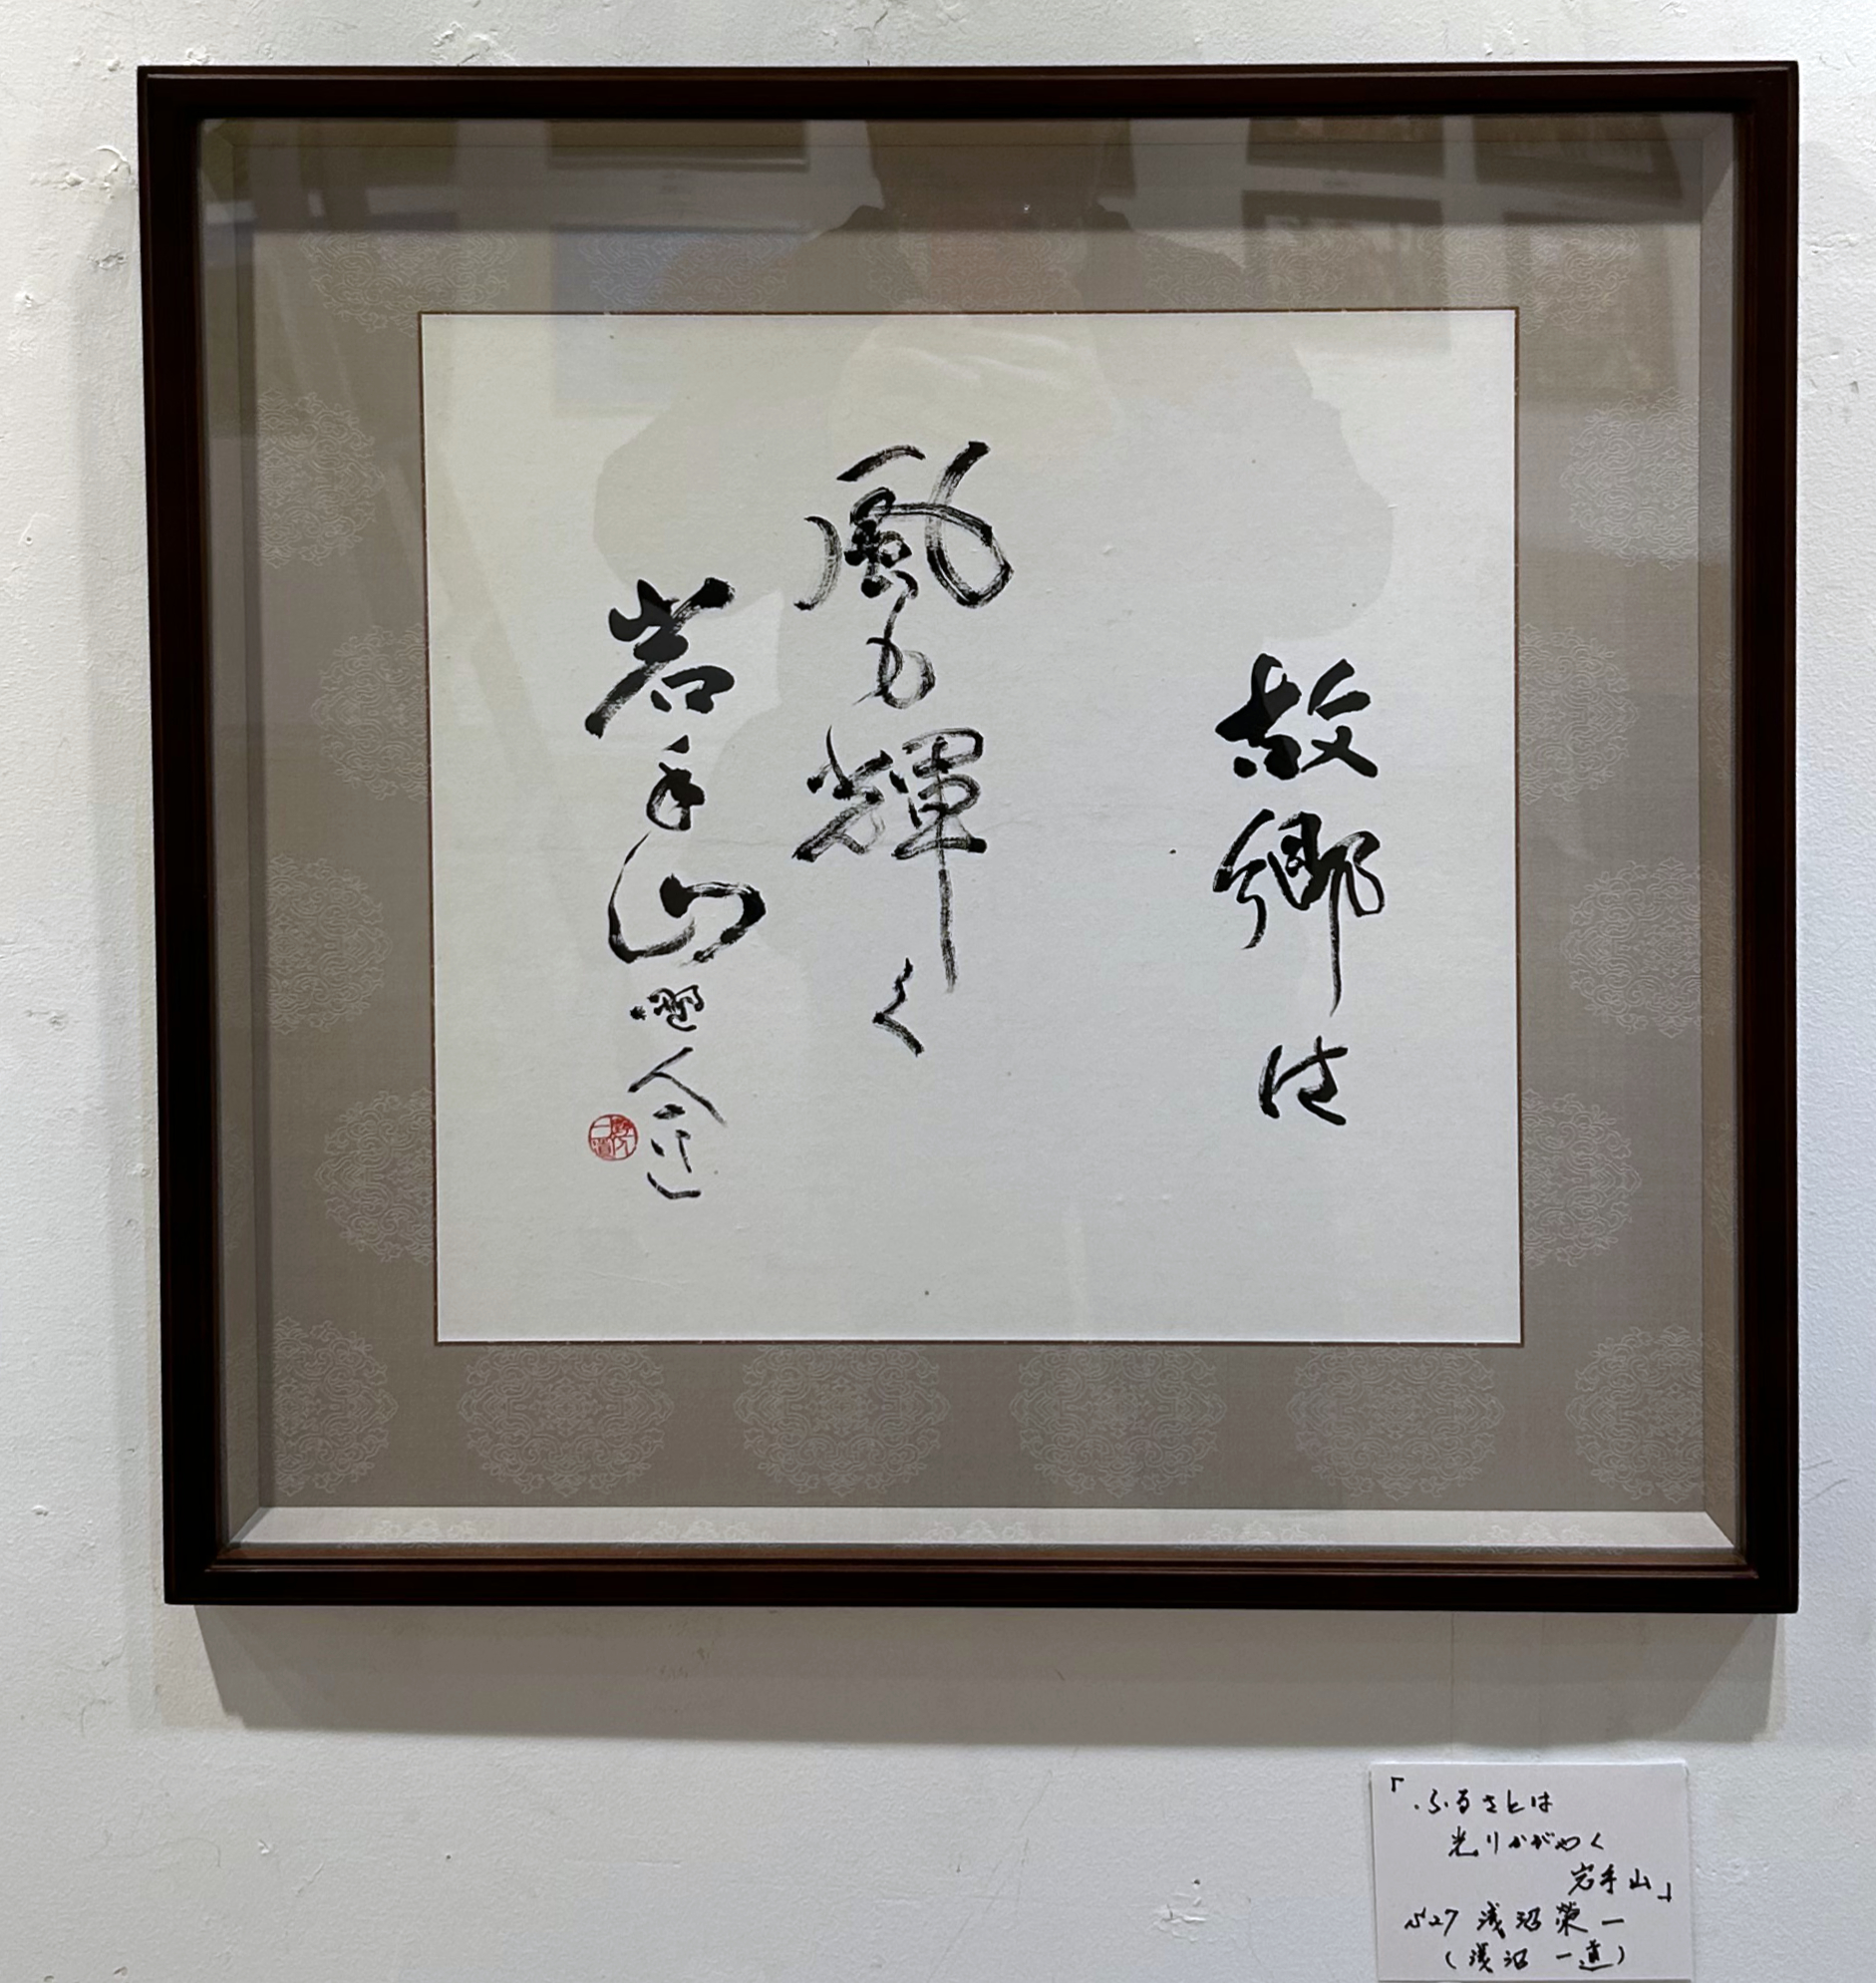 故郷は
風も輝く
岩手山
「ふるさとは
光りかがやく
岩手山」
S27 浅沼榮一
(浅沼 一道)